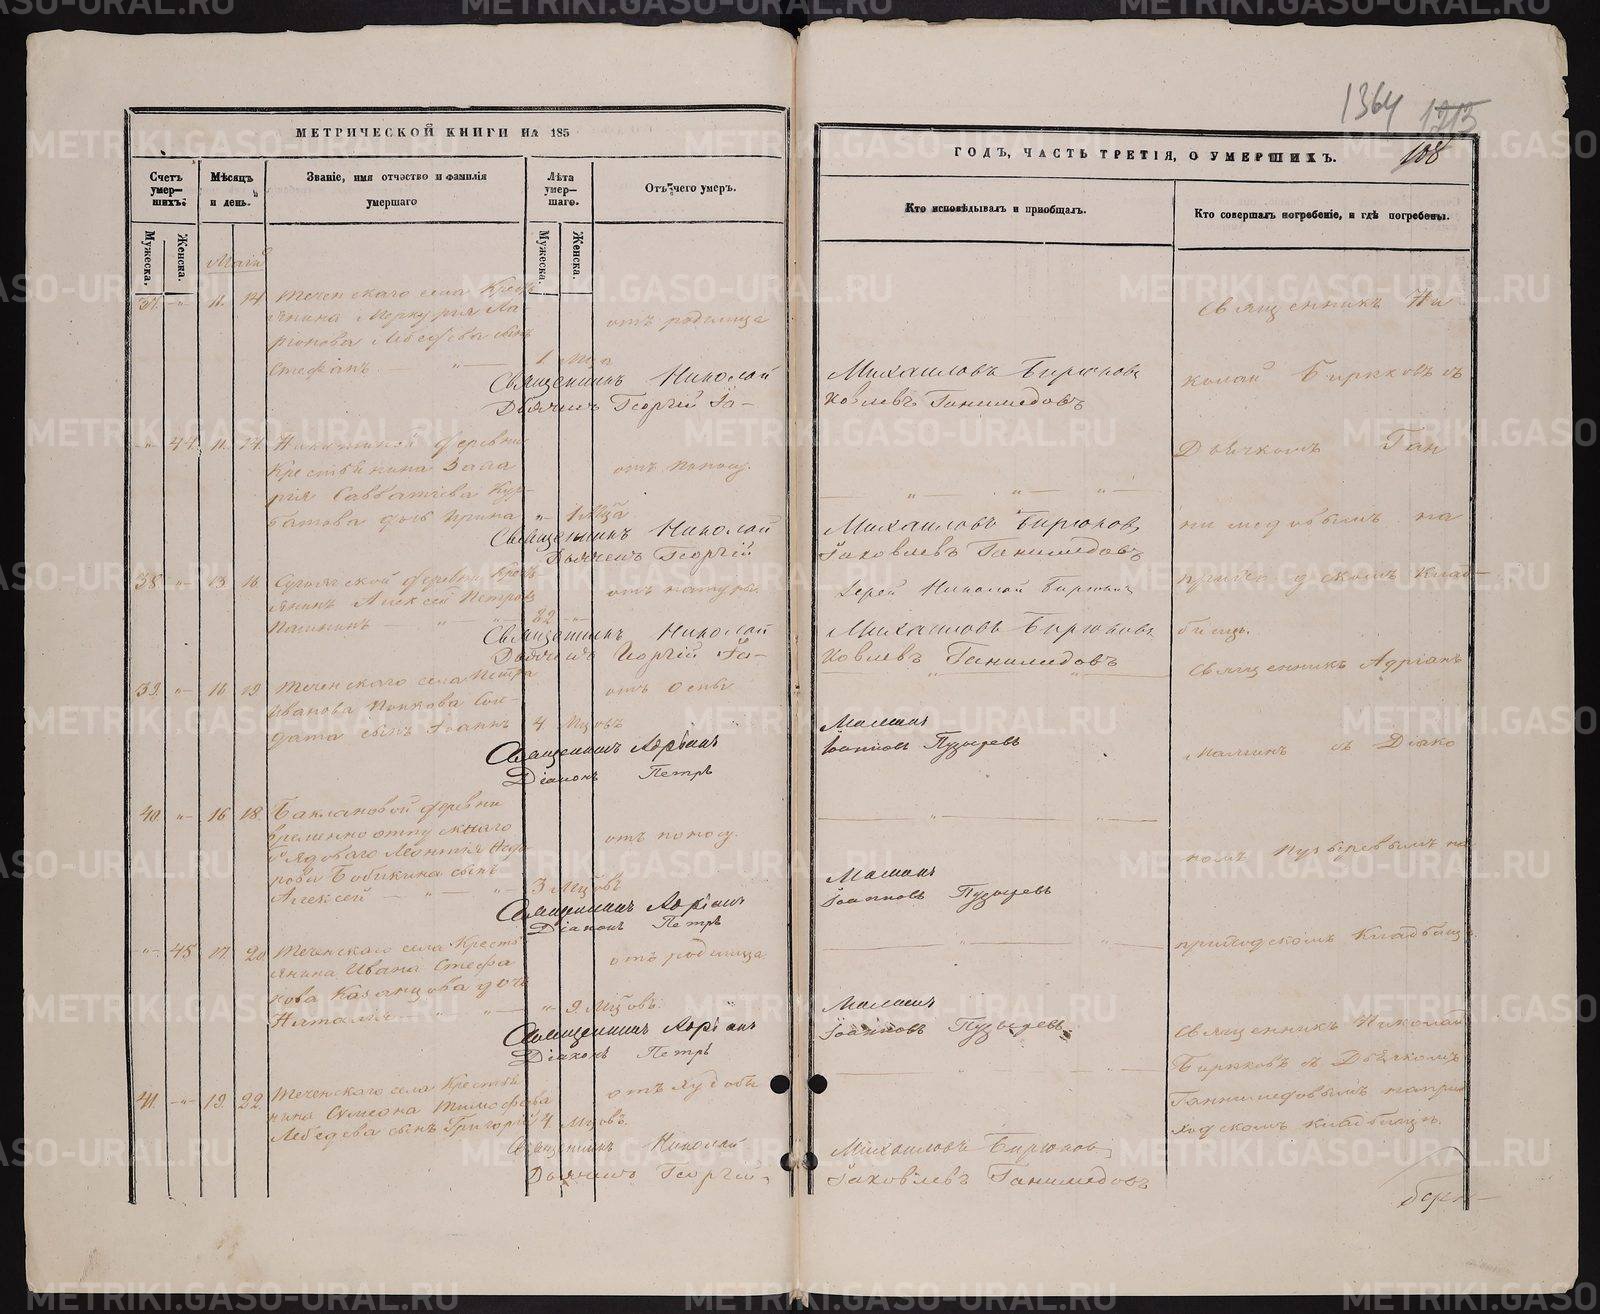 1364 1213
108
МЕТРИЧЕСКОЙ КНИГИ НА 185
ГОДЪ, ЧАСТЬ ТРЕТІЯ, О УМЕРШИХЪ.
Счетъ умер-
шихъ.
Мѣсяцъ
и день.
Званіе, имя отчество и фамилія
умершаго
Лѣта
умер-
шаго.
Отъ чего умеръ.
Кто исповѣдывалъ и приобщалъ.
Кто совершалъ погребеніе, и гдѣ погребены.
Мужеска.
Женска.
Мужеска.
Женска.
Маія
37. -"- 11. 14. Теченскаго села Кресть
янина Меркурія Ла
ріонова Лебедева сынъ
Стефанъ — " — 1 мца
отъ родимца
Священникъ Николай Михаиловъ Бирюковъ
Дьячекъ Георгій Іа-
ковлевъ Ганимедовъ
-"- 44. 11. 14. деревни
Крестьянина Заха
рія Савватіева Кур-
батова дочь Ирина " 1 мца
отъ поносу.
Священникъ Николай Михаиловъ Бирюковъ
Дьячекъ Георгій Іаковлевъ Ганимедовъ
38. -"- 13 16 деревни Кресть
янинъ Алексей Петровъ
Пашнинъ — " — 82 -"-
отъ натуры.
Іерей Николай Бирюковъ
Священникъ Николай Михаиловъ Бирюковъ
Дьячекъ Георгій Іа-
ковлевъ Ганимедовъ
39. -"- 16 19 Теченскаго села Петра
Иванова Попкова Сол-
дата сынъ Іоаннъ 4 мцовъ
отъ оспы
Священникъ Адріанъ
Діаконъ Петръ Іоанновъ Пузыревъ
40. -"- 16 18. Баклановой деревни
временно отпускнаго
рядоваго Леонтія Федо
рова Бобыкина сынъ
Алексей — " — " - 3 мцовъ
отъ поносу.
Священникъ Адріанъ
Діаконъ Петръ Іоанновъ Пузыревъ
-"- 45. 17. 20. Теченскаго села Кресть
янина Ивана Стефа
нова Казанцова дочь
Наталья — " — " 9 мцовъ.
отъ родимца
Священникъ Адріанъ
Діаконъ Петръ Іоанновъ Пузыревъ
41. -"- 19. 22. Теченскаго села Крестья
нина Симеона Тимофеева
Лебедева сынъ Григорій 4 мцовъ.
отъ худобы
Священникъ Николай Михаиловъ Бирюковъ
Дьячекъ Георгій Іаковлевъ Ганимедовъ
Священникъ Ни
колай Бирюковъ съ
Дьячкомъ Ган
имедовымъ на
приходскомъ клад-
бищѣ.
Священникъ Адріанъ
съ Діако
номъ Пузыревымъ на
приходскомъ кладбищѣ.
Священникъ Николай
Бирюковъ съ Дьячкомъ
Ганимедовымъ на при
ходскомъ кладбищѣ.
METRIKI.GASO-URAL.RU